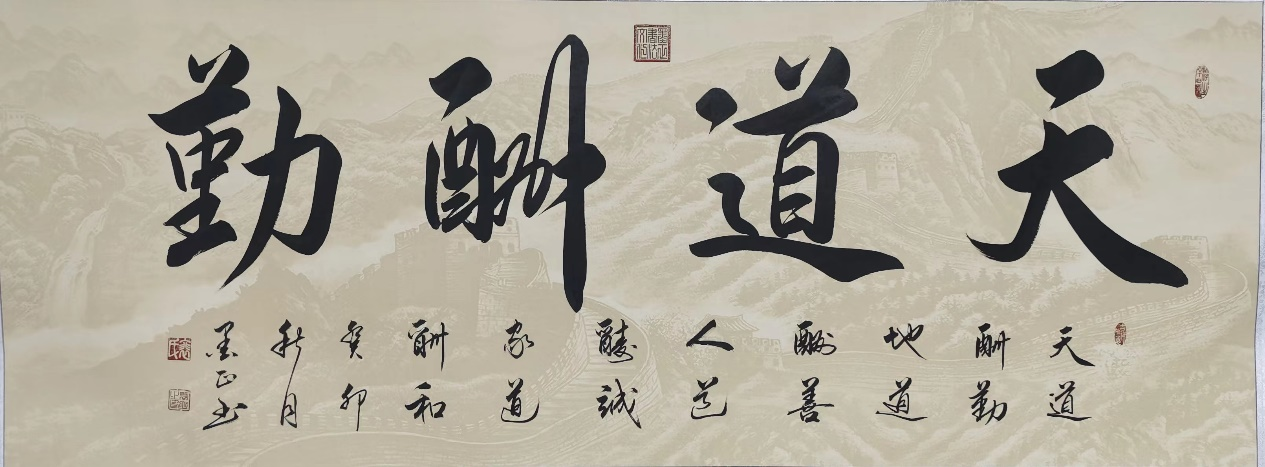 天道酬勤
天道
酬勤
地道
酬善
人道
酬誠
家道
酬和
癸卯
秋月
墨正书